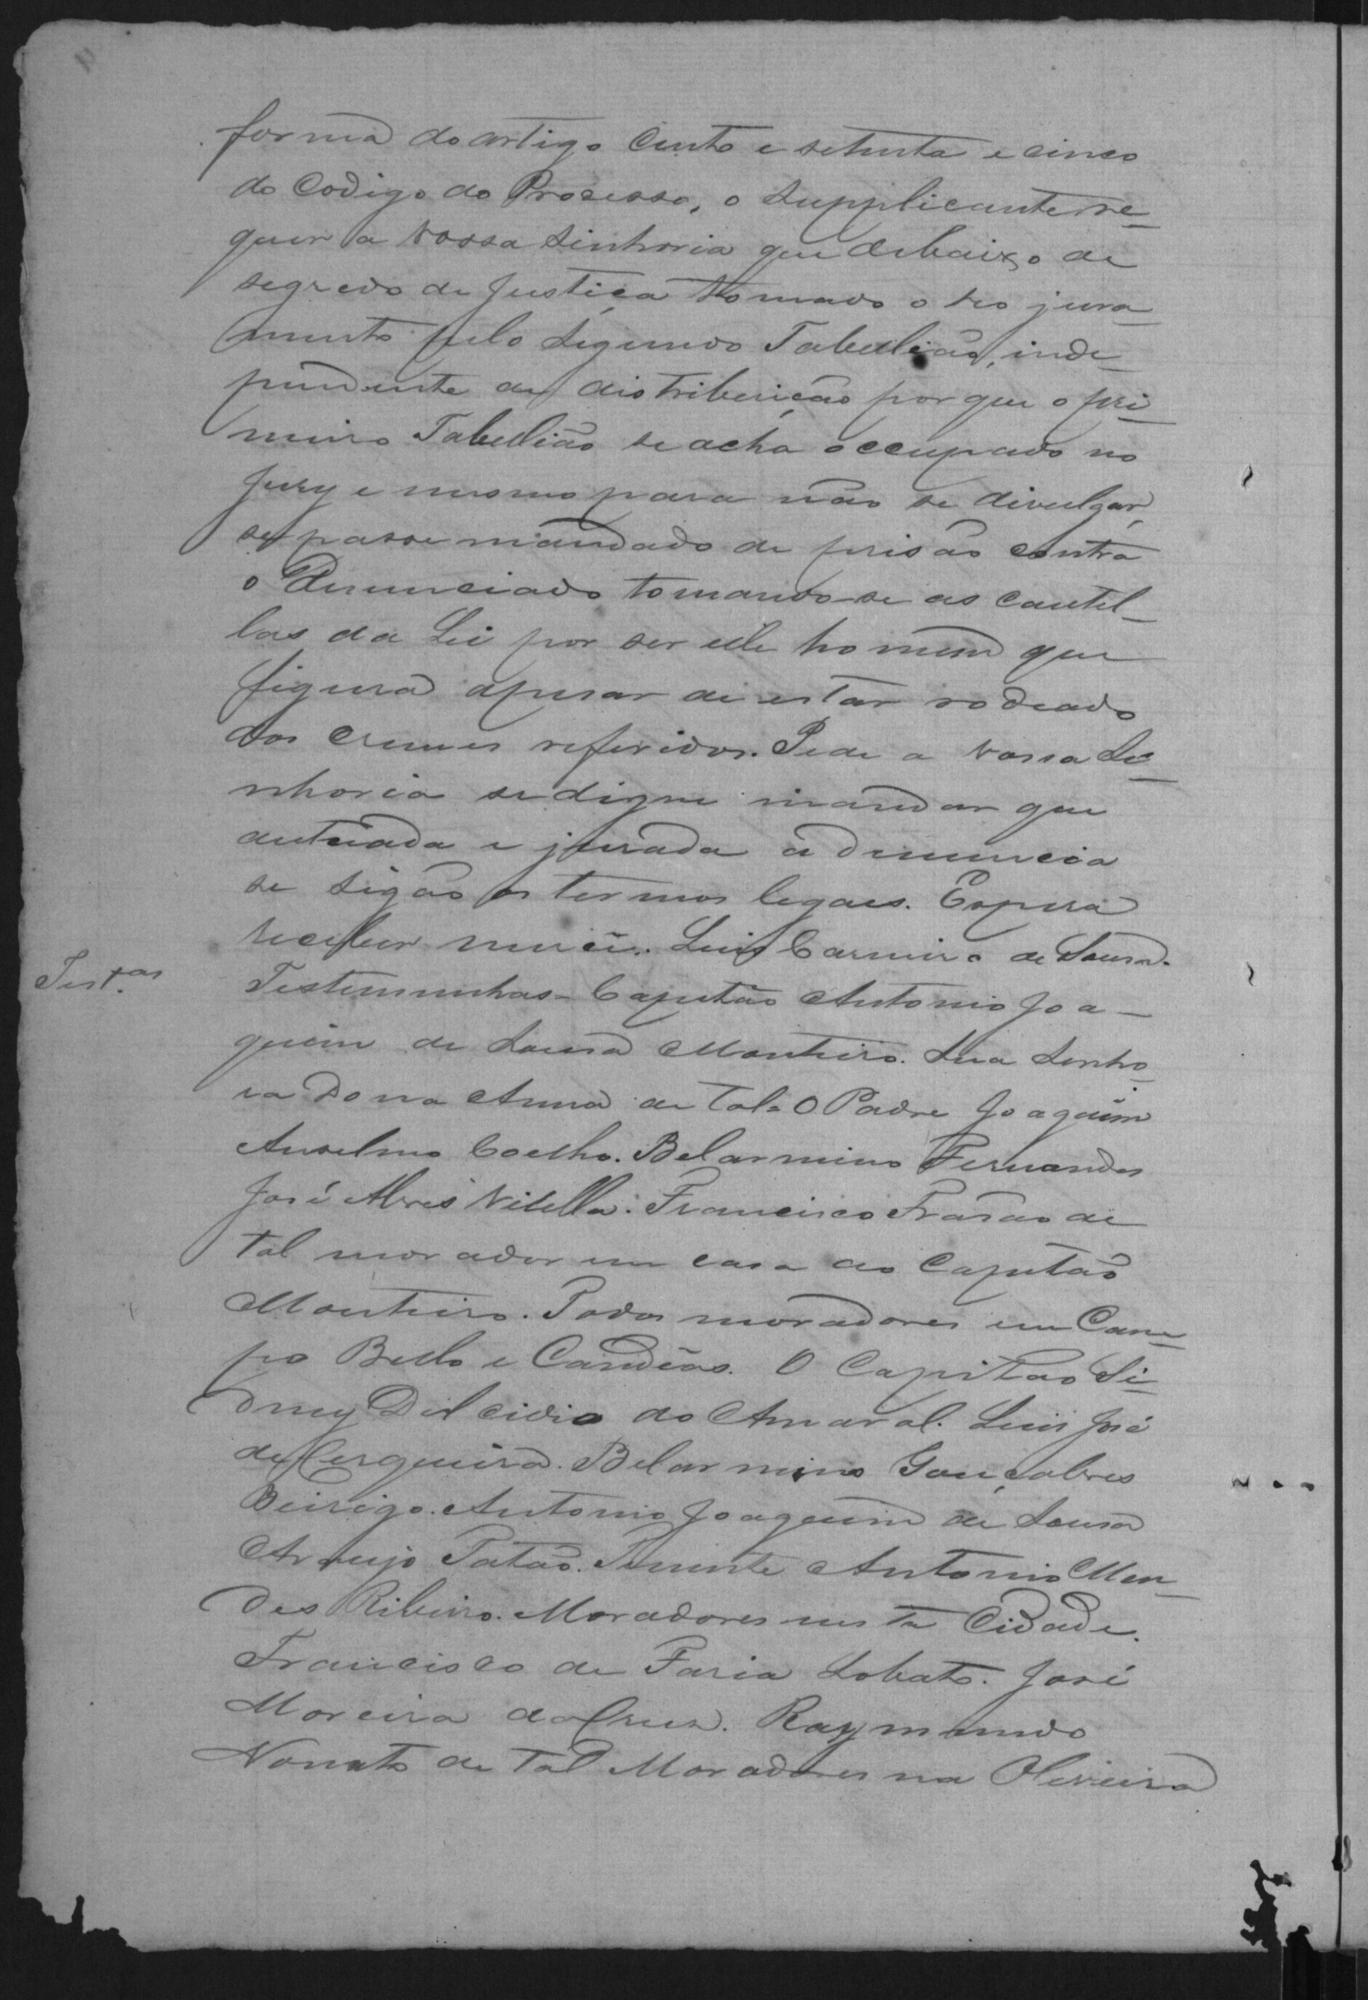 forma do artigo Cento e setenta e cinco
do Codigo do Processo, o Supplicante re-
quer a Vossa Senhoria que debaixo de
segredo de Justiça tomado o seo jura-
mento pelo Segundo Tabellião, inde-
pendente de distribuição por que o pri-
meiro Tabellião se acha occupado no
Jury e mesmo para não se divulgar,
se passe mandado de prisão contra
o Denunciado tomando-se as cautel-
las da Lei por ser elle homem que
figura apesar de estar rodeado
dos crimes referidos. Pede a Vossa Se-
nhoria se digne mandar que
autuada e jurada a denuncia
se sigão os termos legaes. Espera
receber mercê. Luis Carneiro de Sousa.
Test.as
Testemunhas - Capitão Antonio Joa-
quim de Sousa Monteiro. Sua Senho-
ra Dona Anna de tal. O Padre Joaquim
Anselmo Coelho. Belarmino Fernandes
José Alves Vilella. Francisco Frasão de
tal morador em casa do Capitão
Monteiro. Todos moradores em Cam-
po Bello e Candêas. O Capitão Si-
dney Delcidio do Amaral. Luis José
de Cerqueira. Belarmino Gonçalves
Beirigo. Antonio Joaquim de Sousa
Araujo Patão. Tenente Antonio Men-
des Ribeiro. Moradores nesta Cidade.
Francisco de Faria Lobato. José
Moreira da Cruz. Raymundo
Nonato de tal Moradores na Oliveira